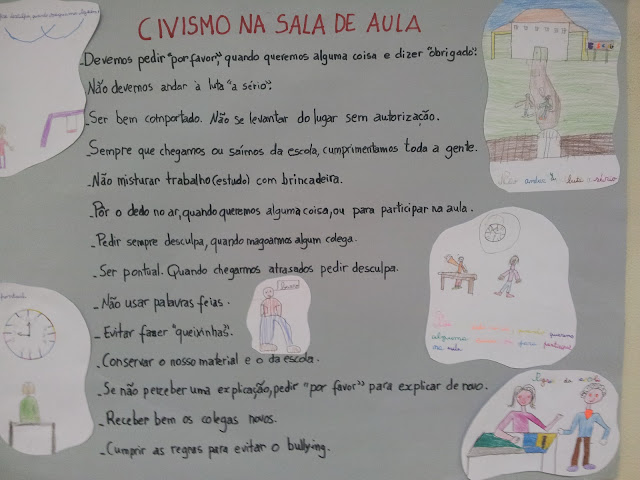 CIVISMO NA SALA DE AULA
-Devemos pedir "por favor", quando queremos alguma coisa e dizer "obrigado".
Não devemos andar à luta "a sério".
-Ser bem comportado. Não se levantar do lugar sem autorização.
Sempre que chegamos ou saímos da escola, cumprimentamos toda a gente.
-Não misturar trabalho (estudo) com brincadeira.
-Pôr o dedo no ar, quando queremos alguma coisa, ou para participar na aula.
-Pedir sempre desculpa, quando magoarmos algum colega.
-Ser pontual. Quando chegarmos atrasados pedir desculpa.
-Não usar palavras feias.
-Evitar fazer "queixinhas".
-Conservar o nosso material e o da escola.
-Se não perceber uma explicação, pedir "por favor" para explicar de novo.
-Receber bem os colegas novos.
-Cumprir as regras para evitar o bullying.
Não andar à luta a sério
quando queremos
alguma
para participar
na aula